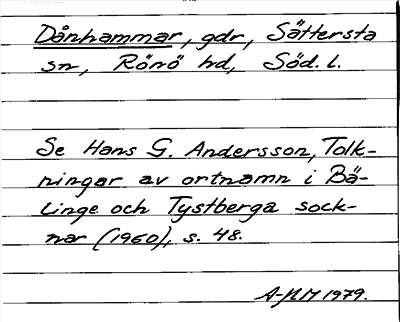 Dånhammar, gdr, Sättersta
sn, Rönö hd, Söd. l.
Se Hans G. Andersson, Tolk-
ningar av ortnamn i Bä-
linge och Tystberga sock-
nar (1960), s. 48.
1979.